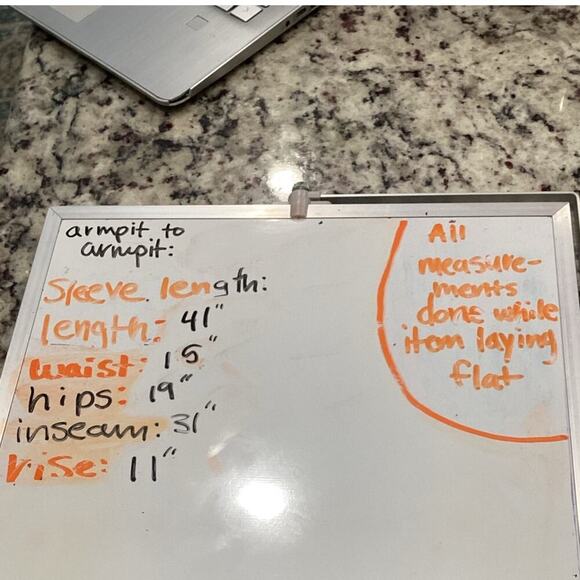 armpit to
armpit:
Sleeve length:
length: 41"
waist: 15"
hips: 19"
inseam: 31"
rise: 11"
All
measure-
ments
done while
item laying
flat